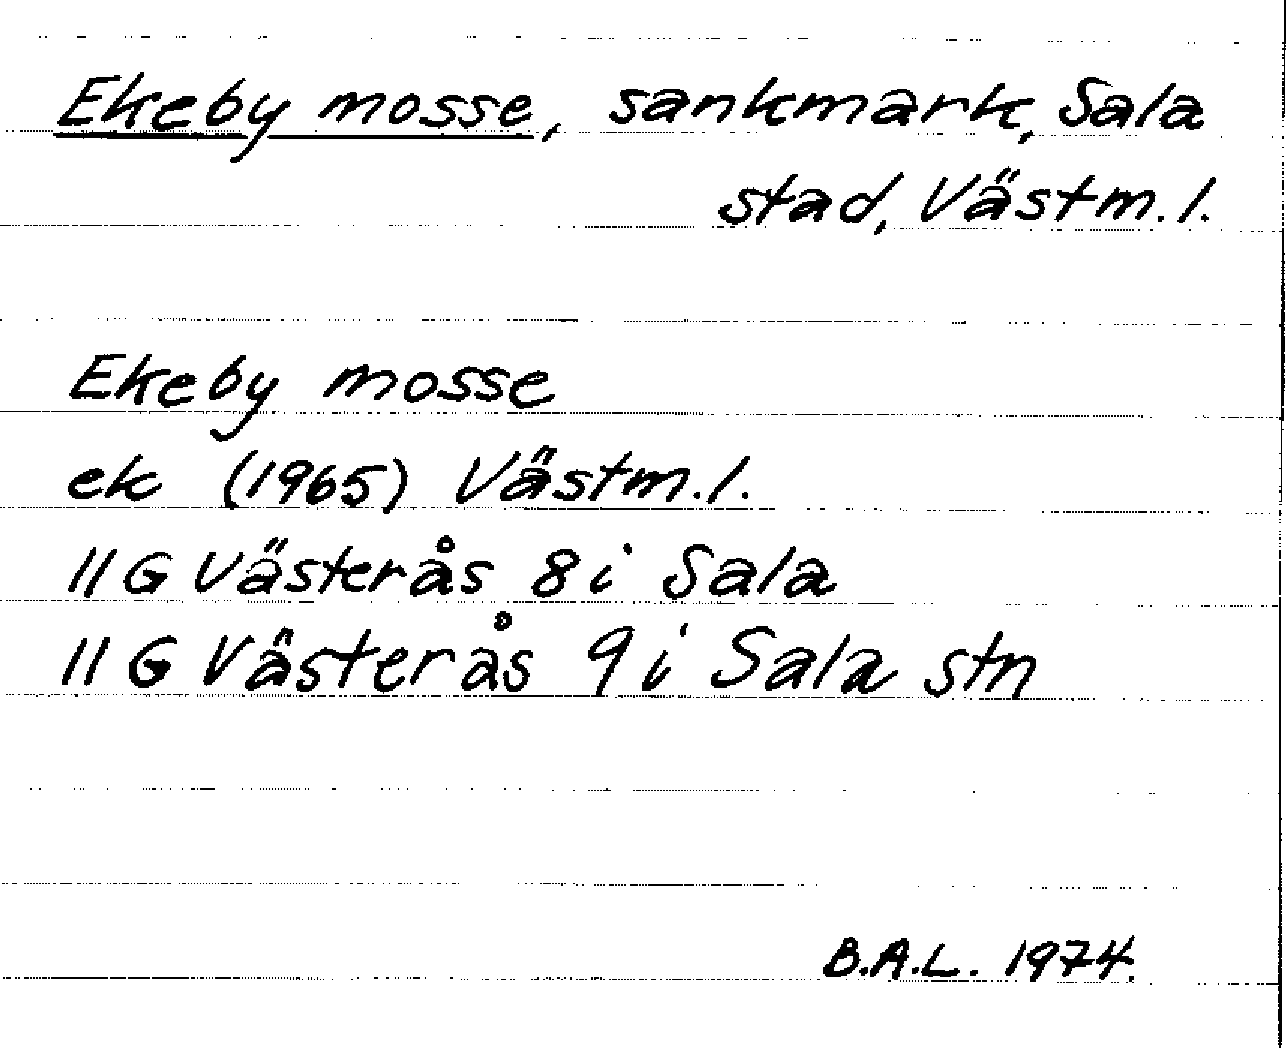 Ekeby mosse, sankmark, Sala
stad, Västm. l.
Ekeby mosse
ek (1965) Västm. l.
11 G Västerås 8 i Sala
11 G Västerås 9 i Sala stn
B.A.L. 1974.